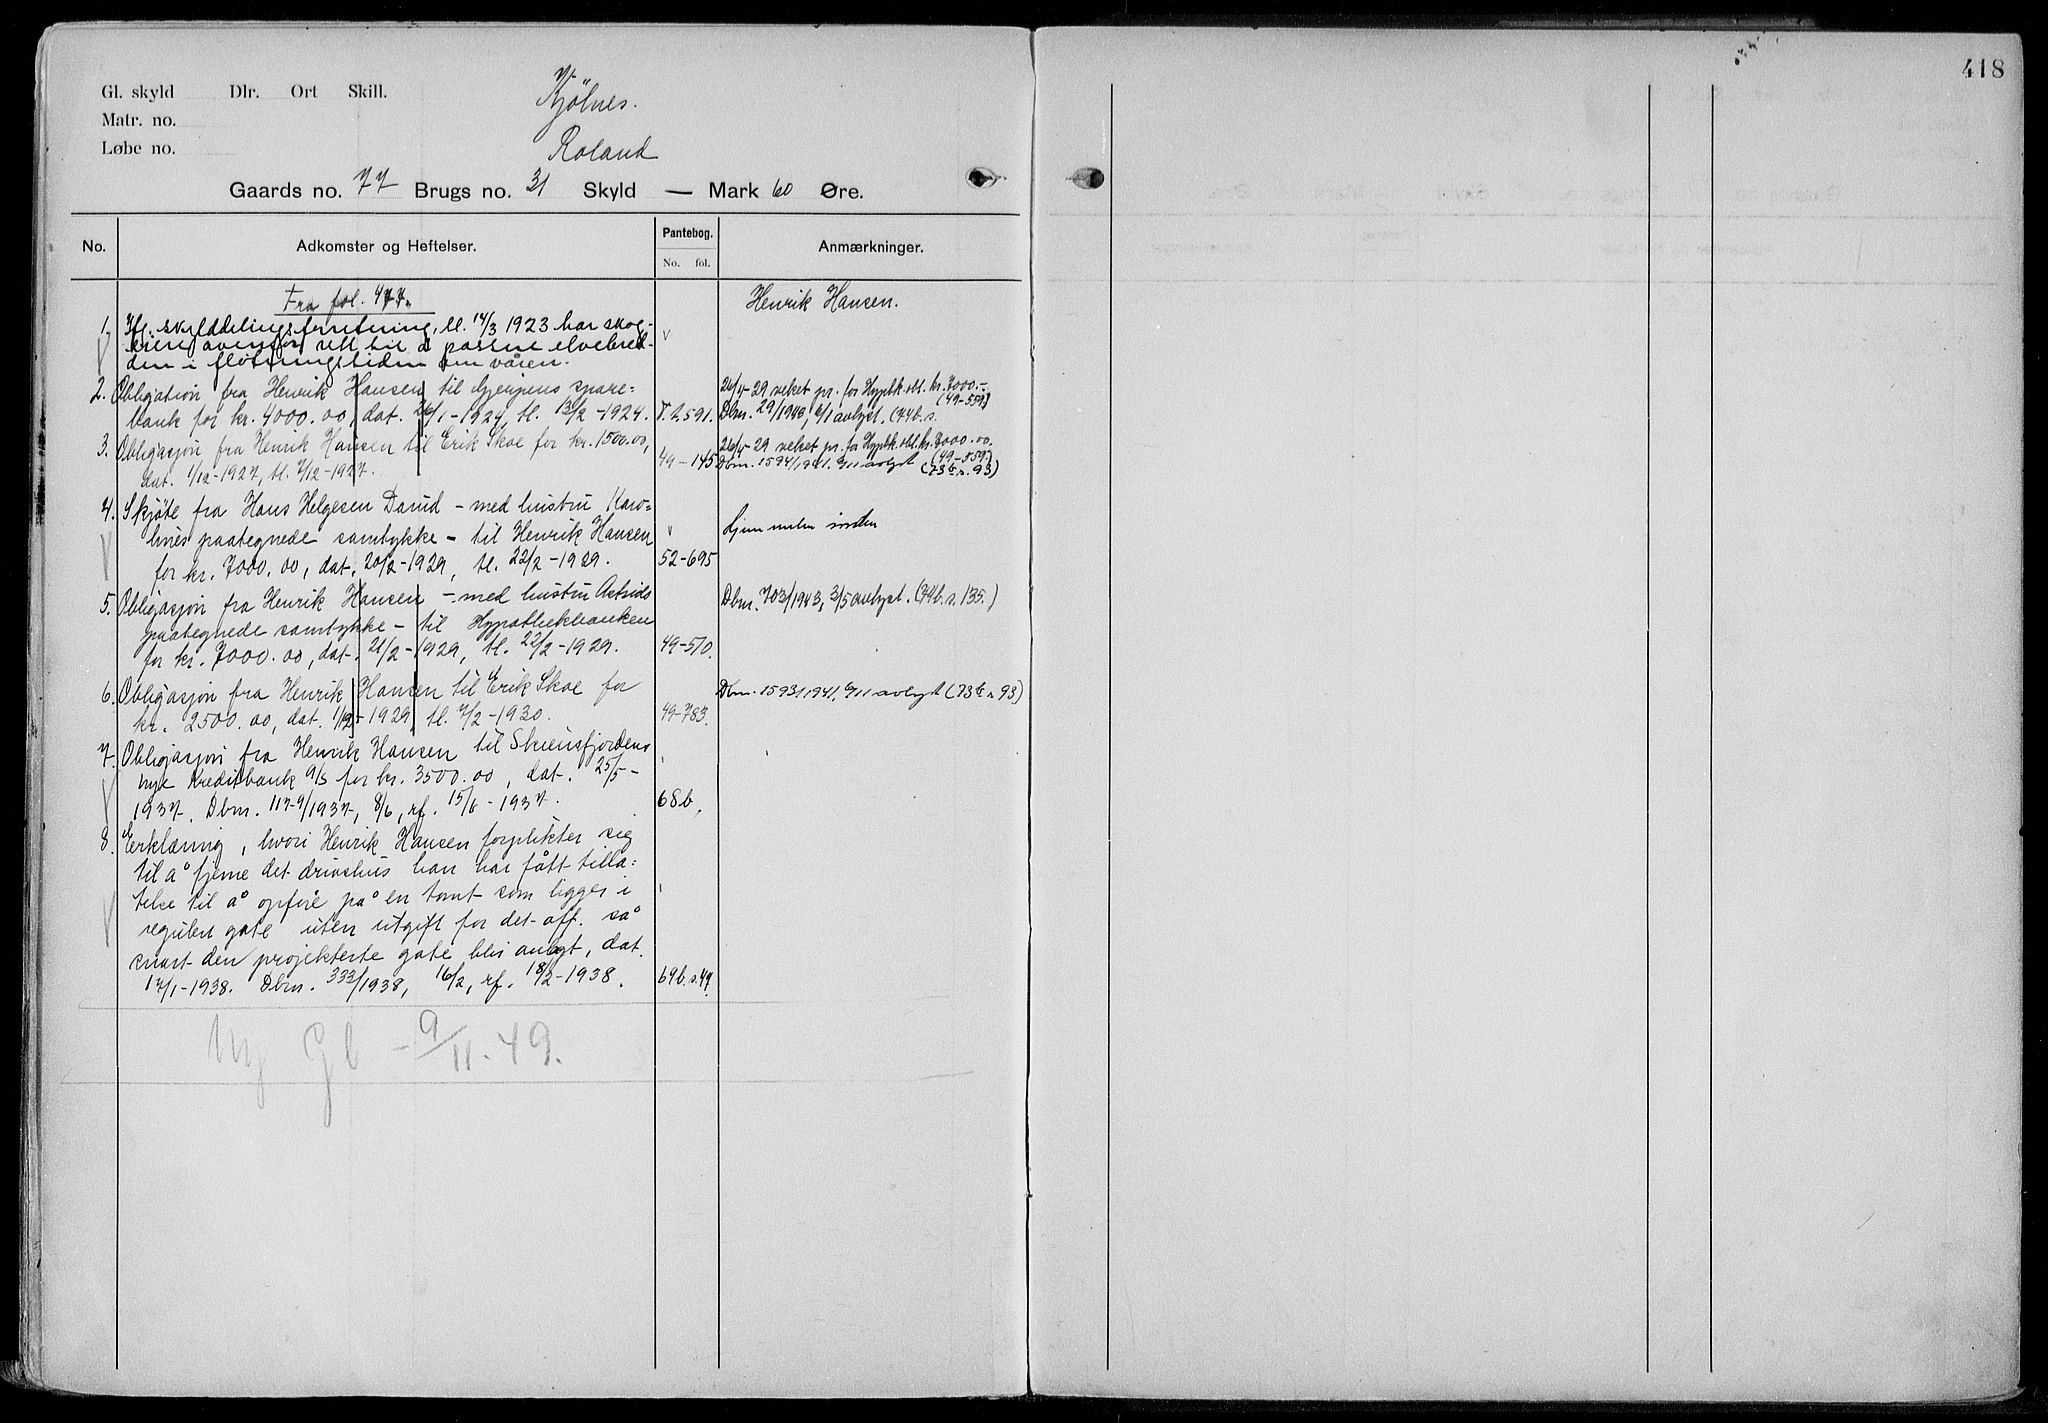 418
Gl. skyld Dlr. Ort Skill.
Matr. no.
Løbe no.
Kjölnes.
Roland
Gaards no. 77 Brugs no. 31 Skyld — Mark 60 Øre.
No. Adkomster og Heftelser. Pantebog. No. fol. Anmærkninger.
Fra fol. 477.
Henrik Hansen.
1. Ifl. skylddelingsforretning, tl. 14/3 1923 har skog-
eiere ovenfor rett til å passere elvebred-
den i fløtningstiden om våren.
2. Obligation fra Henrik Hansen til Gjerpens spare=
bank for kr. 4000.00, dat. 26/1-1924, tl. 13/2-1924. 2.591.
26/4-29 veket pr. for Hypbk. obl. kr. 7000.-
(49-559)
Dbm. 29/1943, 6/1 avlyst. (74b. s.
3. Obligasjon fra Henrik Hansen til Erik Skoe for kr. 1500.00,
dat. 1/12-1927, tl. 7/12-1927. 49-145
26/4-29 veket pr. for Hypbk. obl. kr. 7000.00.
(49-559)
Dbm. 1594/1941. 6/11 avlyst (73b s. 93)
4. Skjöte fra Hans Helgesen Damd - med hustru Karo=
lines paategnede samtykke - til Henrik Hansen
for kr. 7000.00, dat. 20/2-1929, tl. 22/2-1929. 52-695
Hjemmelen inden
5. Obligasjon fra Henrik Hansen - med hustru Astrids
paategnede samtykke - til Hypothekbanken
for kr. 7000.00, dat. 21/2-1929, tl. 22/2-1929. 49-510.
Dbm. 703/1943, 3/5 avlyst. (74b. s. 135.)
6. Obligasjon fra Henrik Hansen til Erik Skoe for
kr. 2500.00, dat. 1/12-1929, tl. 7/2-1930. 49-783.
Dbm. 1593/1941. 6/11 avlyst (73b s. 93)
7. Obligasjon fra Henrik Hansen til Skiensfjordens
nye Kreditbank A/S for kr. 3500.00, dat. 25/5-
1937. Dbm. 1179/1937, 8/6, rf. 15/6-1937. 68b.
8. Erklæring, hvori Henrik Hansen forplikter sig
til å fjerne det drivhus han har fått tilla=
telse til å opføre på en tomt som ligger i
regulert gate uten utgift for det off. så
snart den projekterte gate blir anlagt, dat.
17/1-1938. Dbm. 333/1938, 16/2, rf. 18/2-1938. 69b. s. 49.
Ny Gb - 9/11-49.